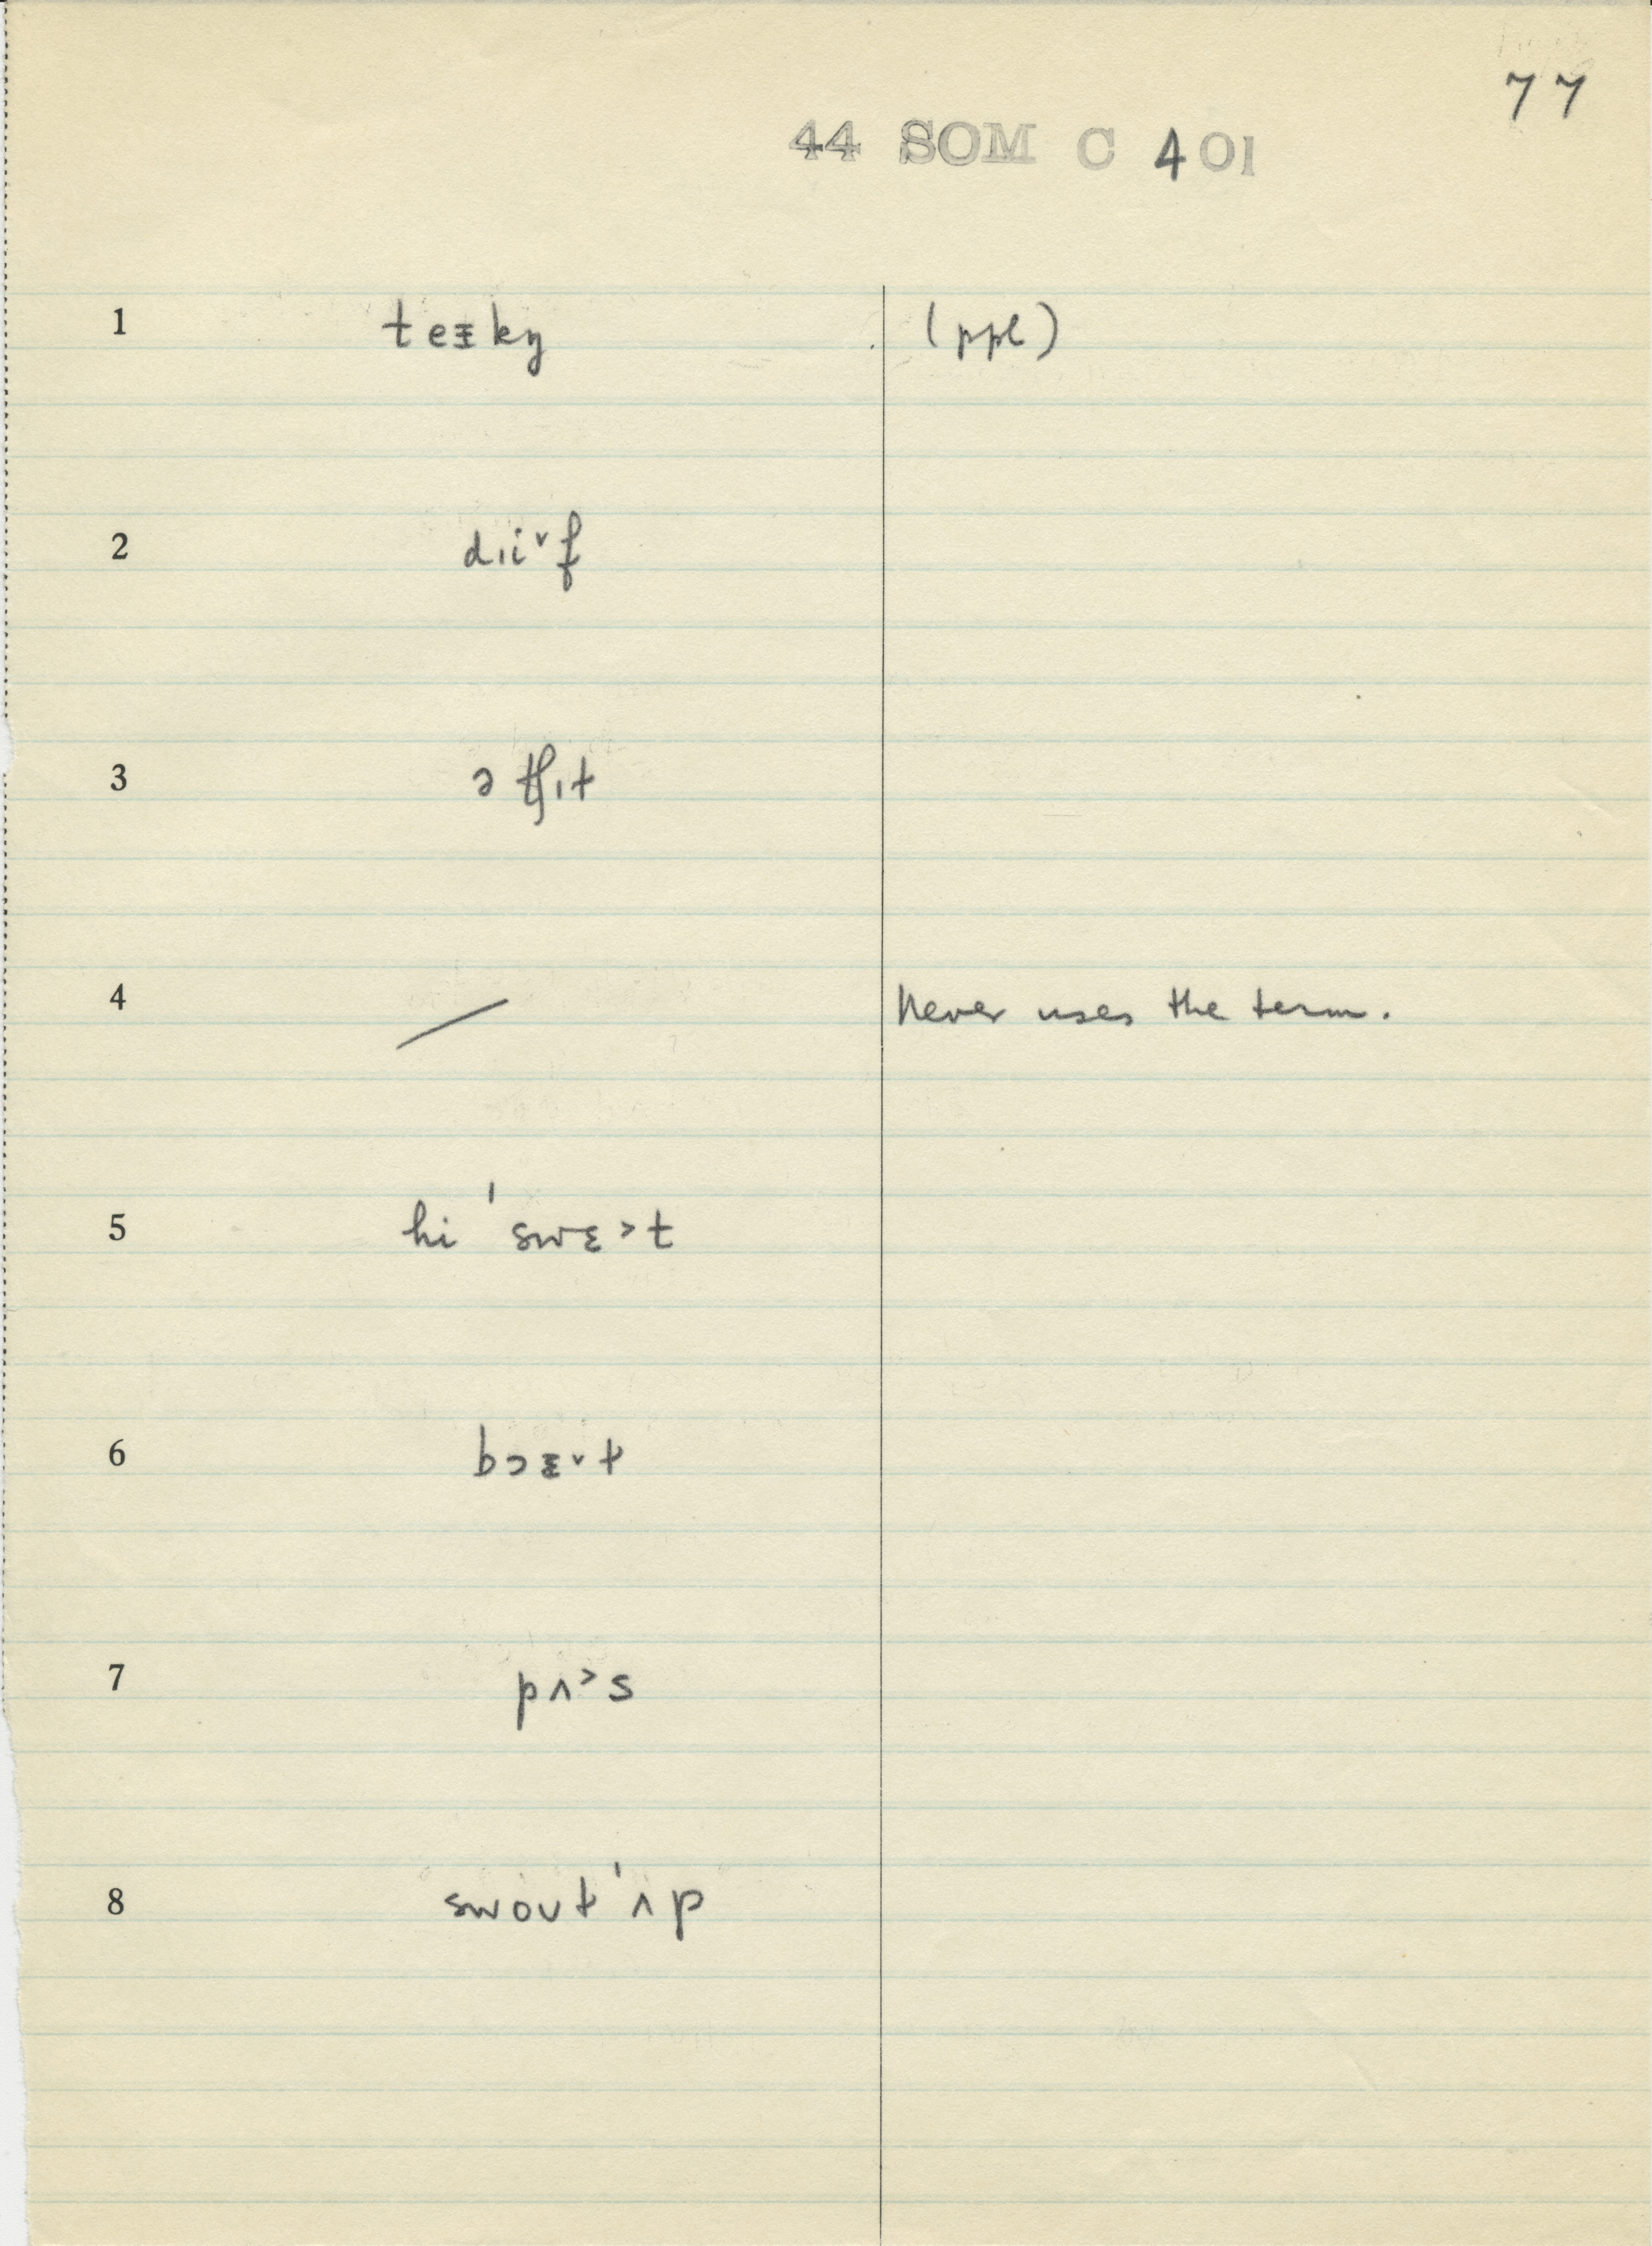 77
44 SOM C 401
1 teɪkŋ (ppl)
2 dɪi˅f
3 ə tʃɪt
4 / Never uses the term.
5 hi ˈswɛ˃t
6 bɔɪ˅t
7 pʌ˃s
8 swoutˈʌp